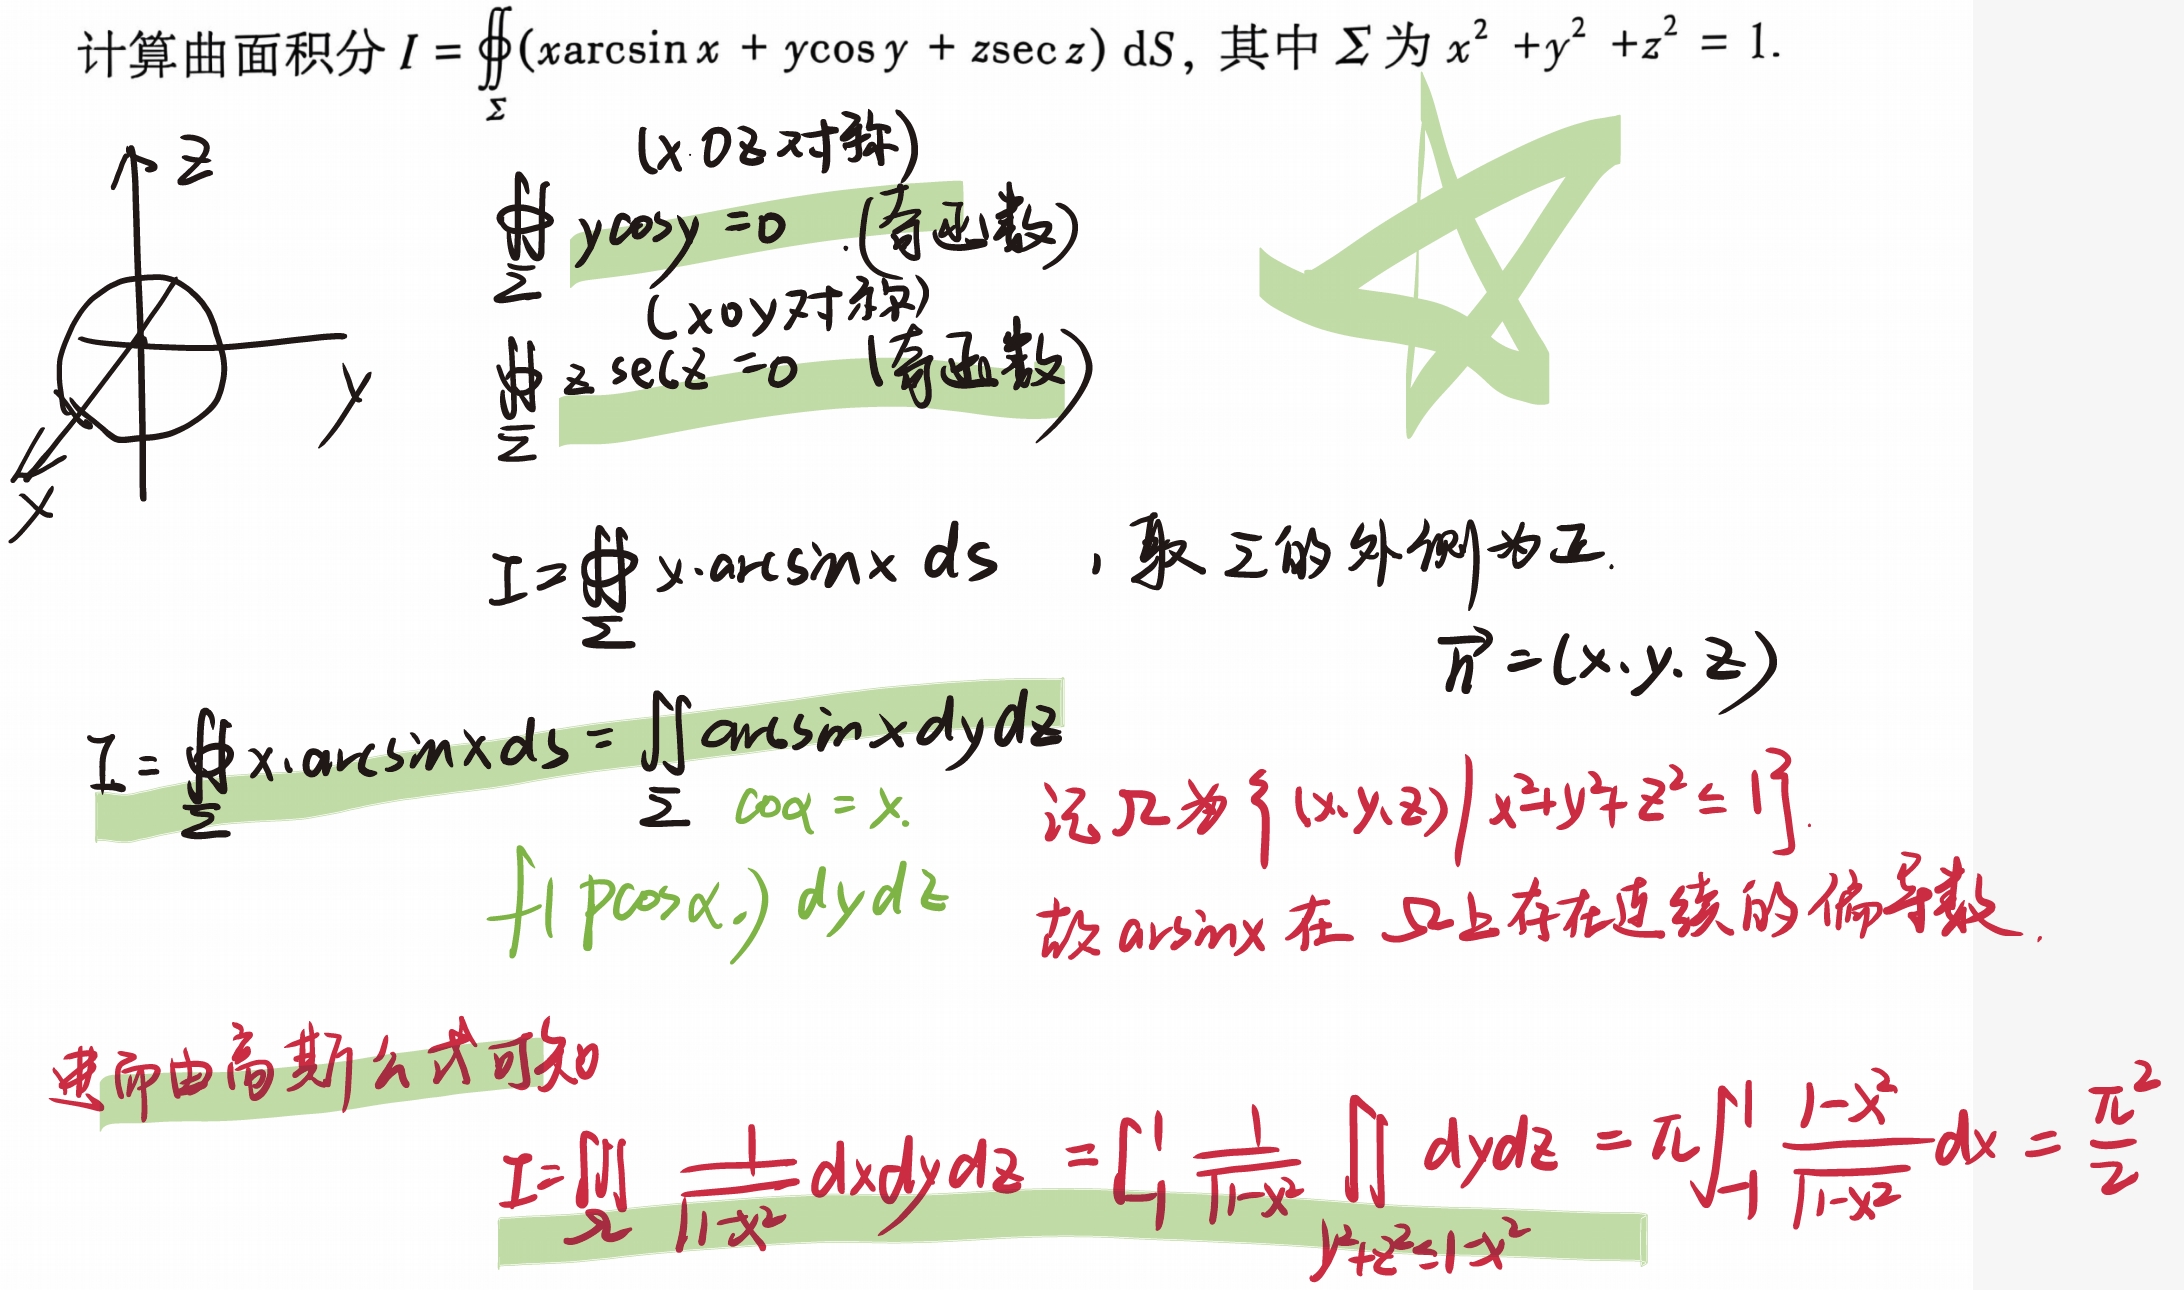 计算曲面积分 I = ∯_Σ (xarcsin x + ycos y + zsec z) dS, 其中 Σ 为 x² + y² + z² = 1.
z
y
x
(xOz对称)
∯_Σ ycosy = 0 (奇函数)
(xoy对称)
∯_Σ z secz = 0 (奇函数)
I = ∯_Σ x·arcsinx ds , 取Σ的外侧为正.
n⃗ = (x, y, z)
I = ∯_Σ x·arcsinx ds = ∬_Σ arcsinx dydz
coα = x.
(Pcosα.) dydz
记Ω为{(x,y,z)|x²+y²+z²≤1}.
故arsinx在Ω上存在连续的偏导数.
进而由高斯公式可知
I = ∭_Ω 1/√(1-x²) dxdydz = ∫_{-1}^{1} 1/√(1-x²) ∬_{y²+z²≤1-x²} dydz = π∫_{-1}^{1} (1-x²)/√(1-x²) dx = π²/2